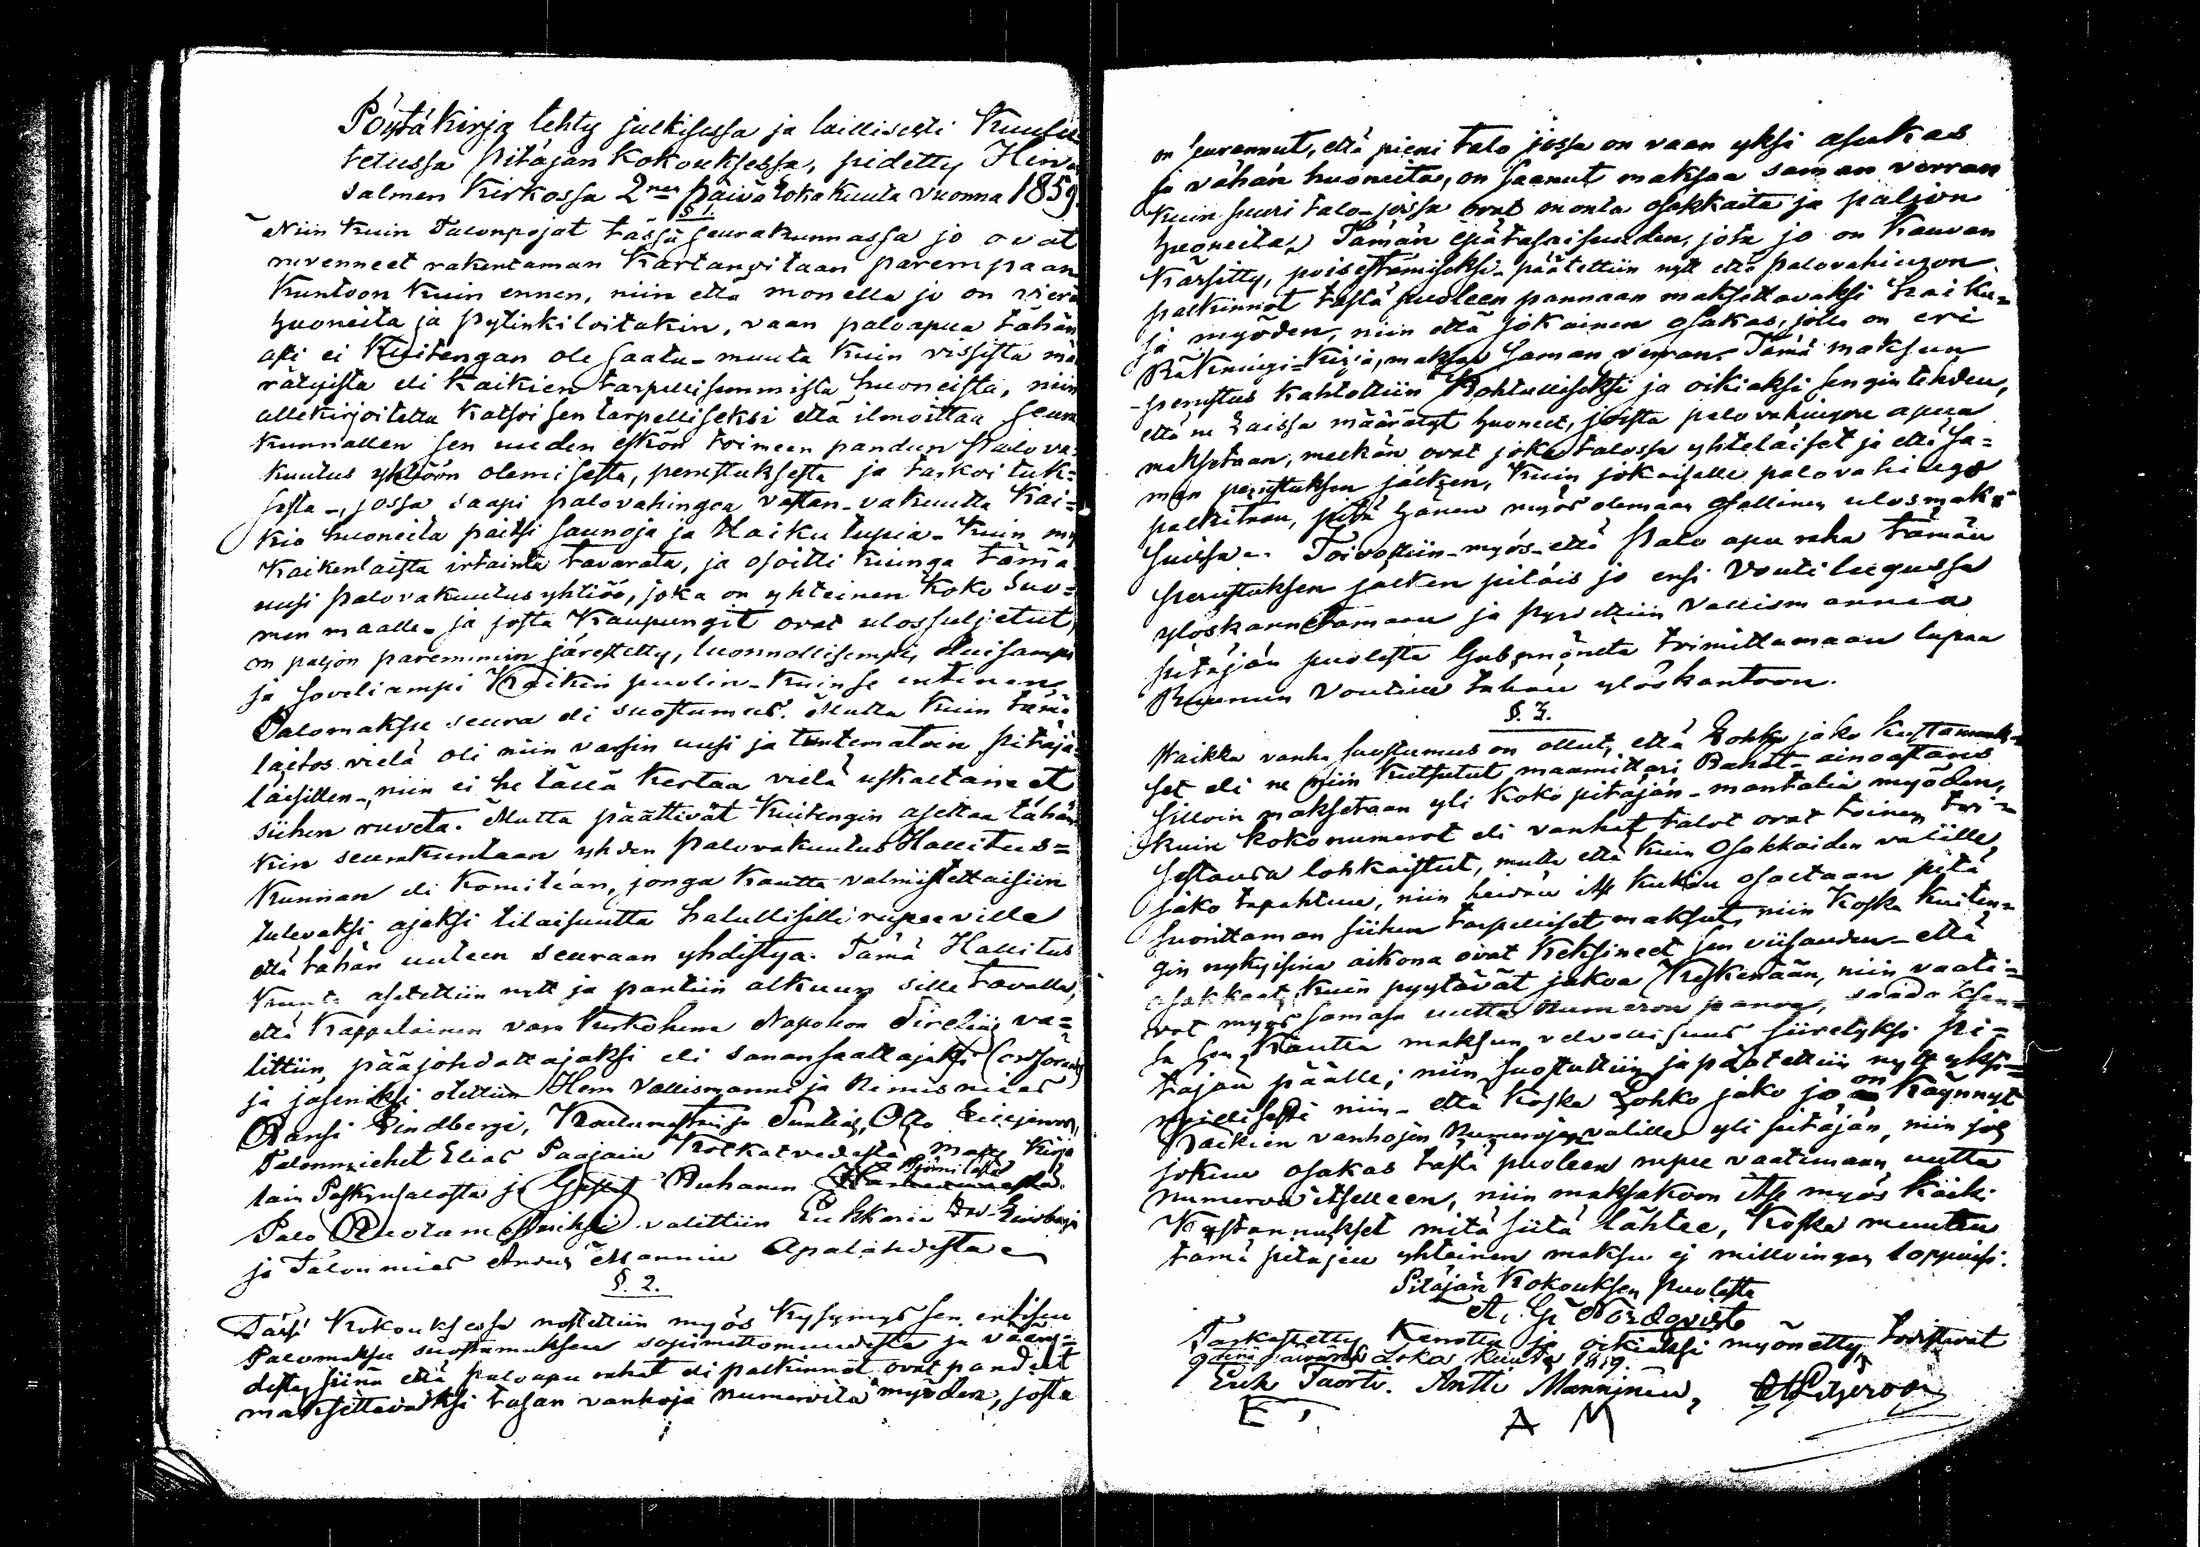 Pöytäkirja tehty julkisessa ja laillisesti Kuulu
tetussa Pitäjän Kokouksessa, pidetty Hirven
salmen Kirkossa 2nen päivä lokakuuta vuonna 1859.
§ 1.
Niin kuin Talonpojat tässä seurakunnassa jo ovat
ruvenneet rakentaman Kartanoitaan parempaan
Kuntoon Kuin ennen, niin että monella jo on vierä
huoneita ja pytinkiloitakin, vaan paloapua tähän
asti ei Kuitengan ole saatu muuta Kuin vissistä mä
rätyistä eli Kaikien tarpellisemmista huoneista, niin
allekirjoitettu Katsoi sen tarpelliseksi että ilmoittaa Seura
Kunnallen sen uuden eskön toimeen pandun Palova
kuutus yhtiöön olemisesta, perustuksesta ja tarkoituk=
sesta, jossa saapi palovahingoa vastan vakuutta Kai=
kia huoneita paitsi saunoja ja Haiku tupia Kuin my
Kaikenlaista irtainta tavarata, ja osoitti kuinga tämä
uusi palovakuutus yhtiöö, joka on yhteinen Koko Suo=
men maalle ja josta Kaupungit ovat ulossuljetut,
on paljon paremmin järestetty, luonnollisempi,
ja soveliampi Kaikin puolin Kuin se entinen
Palomaksu seura eli suostumus. Mutta Kuin tämä
laitos vielä oli niin varsin uusi ja tuntematoin pitäjä
läisillen, niin ei he tällä kertaa vielä uskaltaneet
siihen ruveta. Mutta päättivät Kuitengin asettaa tähän
kin seurakuntaan yhden Palovakuutus Hallitus=
Kunnan eli Komiteän, jonga Kautta valmistettaisiin
tulevaksi ajaksi tilaisuutta halullisille rupeeville
että tähän uuteen seuraan yhdistyä. Tämä Hallitus
Kunta asetettiin nytt ja pantiin alkuun sille tavalla,
että Kappalainen vara Kirkkoherra Napoleon Sirelius va=
littiin pääjohdattajaksi eli sanansaattajaksi
ja jäseniksi otettiin Herra Vallesmanni ja Nimismies
Lindbergi, Otto
Talonmiehet Elias Paajain Kotkatvedestä Matti Kirja
lain Paskynsalosta ja Puhanen
Palo valittiin Lukkari
ja Talonmies Mannin Apalahdesta
§. 2.
Tässä Kokouksessa nostettiin myös Kysymys sen entisen
Palomaksu suostumuksen sopimattomuudesta ja vääry=
destä, siinä että paloapu rahat eli palkinnot ovat pandut
maksettavaksi tasan vanhoja numeroita myöden, josta
on seurannut, että pieni talo jossa on vaan yksi asukas
ja vähän huoneita, on saanut maksaa saman verran
Kuin suuri talo jossa ovat monta osakkaita ja paljon
huoneita. Tämän epätasaisuuden, jota jo on Kauvan
Kärsitty, poisestämiseksi päätettiin nytt että palovahingon
palkinnot tästä puoleen pannaan maksettavaksi
ja myöden, niin että jokainen osakas, jolla on eri
Räkningi Kirja, maksaa saman verran. Tämä maksun
perustus Katsottiin Kohtulliseksi ja oikiaksi sengin tehden,
että ne Laissa määrätyt huoneet, joista palovahingon apua
maksetaan, melkän ovat joka talossa yhtäläiset ja että sa=
man perustuksen jälken, Kuin jokaiselle palovahingo
palkitaan, pitä hänen myös oleman osallinen ulosmak=
suissa. Toivottiin myös että Palo apu raha tämän
perustuksen jälken pitäis jo ensi Vouti
ylöskannettamaan ja pyydettiin Vallismannia
pitäjän puolesta Gubernöriltä toimittamaan lupaa
Ruunun Voutille tähän ylöskantoon.
§. 3.
Waikka vanha suostumus on ollut, että Lohko jako Kustannuk=
set eli ne niin Kutsutut maamittari Rahat ainoastans
silloin maksetaan yli Koko pitäjän mantalia myöden,
Kuin kokonumerot eli vanhat talot ovat toinen toi=
sestansa lohkaistut, mutta että Kuin Osakkaiden välille
jako tapahtuu, niin heidän itse kukin osaltaan pitä
suorittaman siihen tarpelliset maksut, niin Koska Kuiten=
gin nykyisinä aikona ovat Keksineet sen viisauden että
osakkaat, Kuin pyytävät jakoa Keskenään, niin vaati=
vat myös samassa uutta Numeron panoa, saada
Kautta maksun velvollisuus siiretyksi pi=
täjän päälle; niin suostuttiin ja päätettiin nytt yksi=
mielisesti niin että Koska Lohko jako jo on Käynnyt
Kaikien vanhojen Numerojen välille yli pitäjän, niin jos
jokuu osakas tästä puoleen rupee vaatimaan uutta
Numeroa itselleen, niin maksakoon itse myös Kaiki
Kustannukset mitä siitä lähtee, Koska muuten
tämä pitäjen yhteinen maksu ei milloingan loppuisi.
Pitäjän Kokouksen puolesta
A. G. Nordqvist
Tarkastettu Kerrottu ja oikiaksi myönetty todistavat
9tenä päivänä Loka Kuuta 1859.
Erik Taorti. Antti Manninen,
E T A M